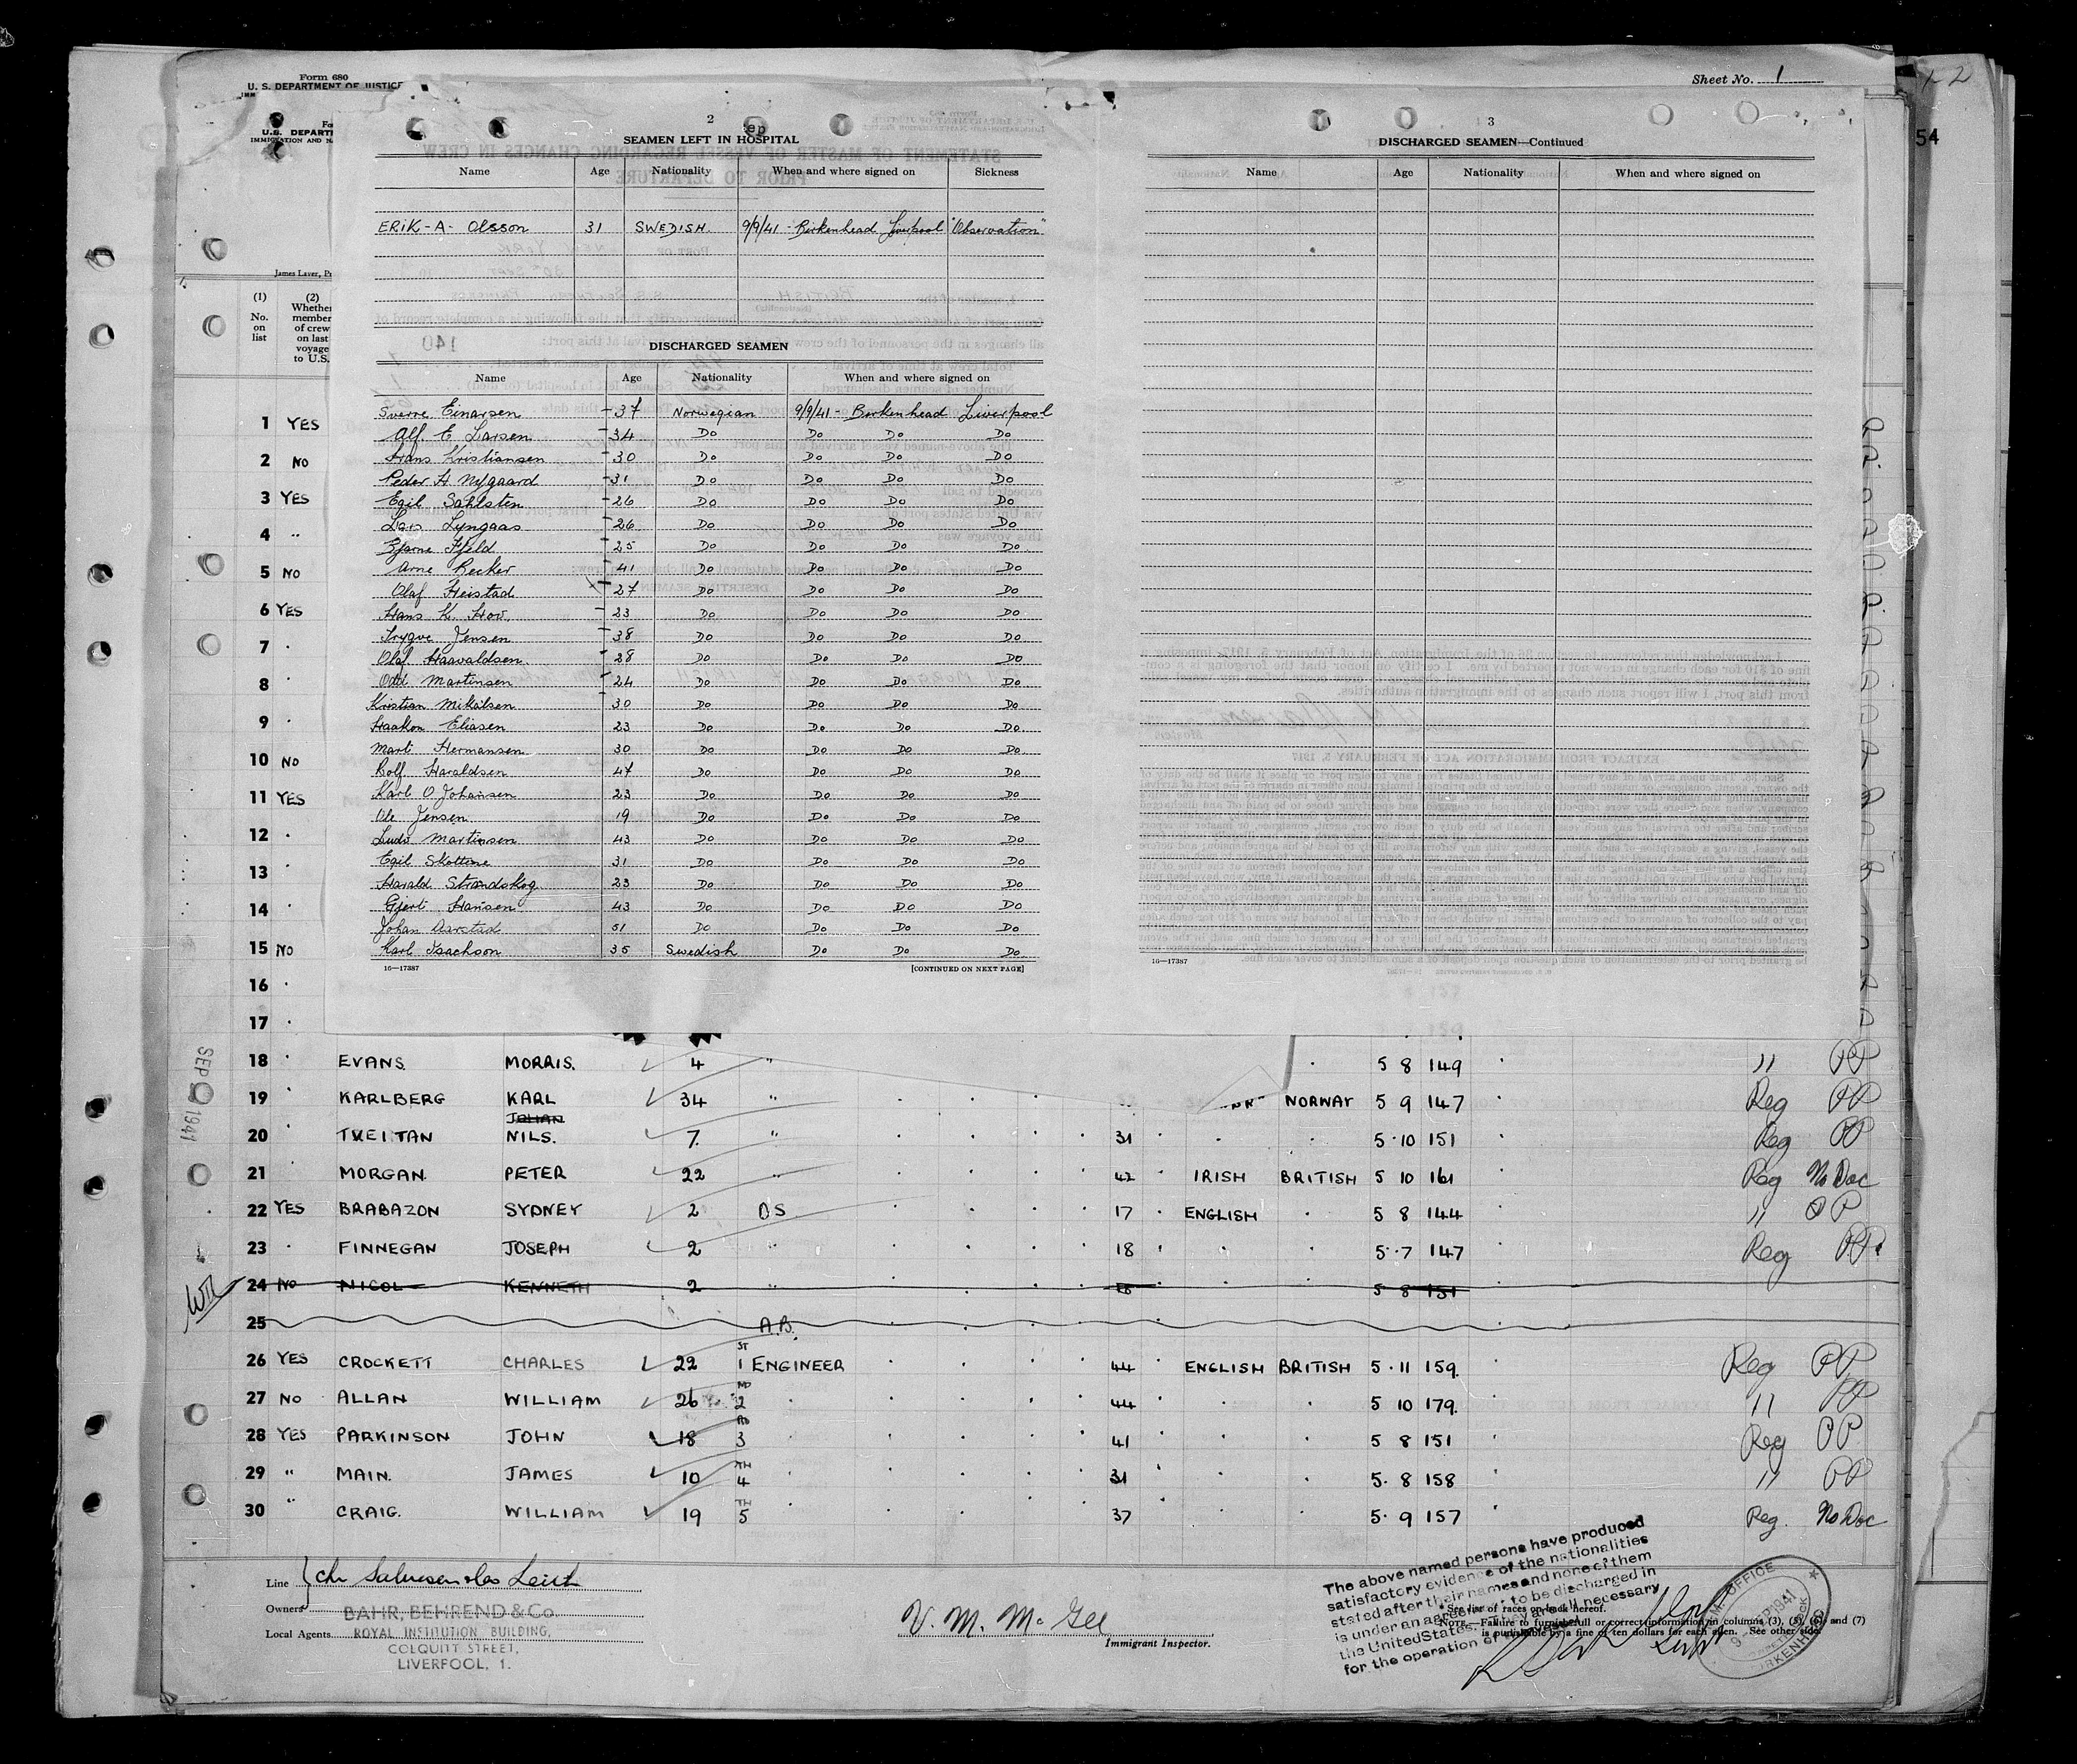 Form 680
U. S. DEPARTMENT OF JUSTICE
Sheet No. 1
U.S. DEPARTM
54
James Laver,
(1) No. on list
(2) Whether member of crew on last voyage to U.S.
2
SEAMEN LEFT IN HOSPITAL
Name Age Nationality When and where signed on Sickness
ERIK - A - Olsson 31 SWEDISH 9/9/41 - Birkenhead Liverpool "Observation"
DISCHARGED SEAMEN
Name Age Nationality When and where signed on
Sverre Einarsen 37 Norwegian 9/9/41 - Birkenhead Liverpool
Alf. E. Larsen 34 Do Do Do Do
Hans Kristiansen 30 Do Do Do Do
Peder H Nygaard 31 Do Do Do Do
Egil Sahlsten 26 Do Do Do Do
Lars Lyngaas 26 Do Do Do Do
Bjarne 25 Do Do Do Do
Arne Becker 41 Do Do Do Do
Olaf Heistad 27 Do Do Do Do
Hans K. Hov. 23 Do Do Do Do
Trygve Jensen 38 Do Do Do Do
Olaf Haavaldsen 28 Do Do Do Do
Odd Martinsen 24 Do Do Do Do
Kristian Mikalsen 30 Do Do Do Do
Haakon Eliasen 23 Do Do Do Do
Marti Hermansen 30 Do Do Do Do
Rolf Haraldsen 47 Do Do Do Do
Karl O Johansen 23 Do Do Do Do
Ole Jensen 19 Do Do Do Do
Ludv Martinsen 43 Do Do Do Do
Egil Skottine 31 Do Do Do Do
Harald Strandskog 23 Do Do Do Do
Gjert Hansen 43 Do Do Do Do
Johan Aarstad 51 Do Do Do Do
Karl Isachson 35 Swedish Do Do Do
16—17387 [CONTINUED ON NEXT PAGE]
3
DISCHARGED SEAMEN—Continued
Name Age Nationality When and where signed on
16—17387
1 YES
2 NO
3 YES
4 "
5 NO
6 YES
7
8
9
10 NO
11 YES
12
13
14
15 NO
16
17
18 EVANS MORRIS. 4 " 5 8 149 " PP
19 KARLBERG KARL JOHAN 34 " NORWAY 5 9 147 Reg PP
20 TVEITAN NILS. 7. " 31 5 10 151 Reg PP
21 MORGAN. PETER 22 " 42 IRISH BRITISH 5 10 161 Reg No Doc
22 YES BRABAZON SYDNEY 2 OS 17 ENGLISH 5 8 144 " PP
23 FINNEGAN JOSEPH 2 " 18 5 7 147 Reg PP
24 NO NICOL KENNETH 2 " 18 5 8 151
25 A.B.
26 YES CROCKETT CHARLES 22 1ST ENGINEER 44 ENGLISH BRITISH 5 11 159. Reg PP
27 NO ALLAN WILLIAM 26 2ND 44 5 10 179. " PP
28 YES PARKINSON JOHN 18 3RD 41 5 8 151 Reg PP
29 " MAIN. JAMES 10 4TH 31 5. 8 158 " PP
30 " CRAIG. WILLIAM 19 5TH 37 5. 9 157 Reg. No Doc
SEP 1941
Line Chr Salvesen & Co Leith
Owners
BAHR, BEHREND & Co.
Local Agents ROYAL INSTITUTION BUILDING,
COLQUITT STREET,
LIVERPOOL, 1.
V. M. McGee
Immigrant Inspector.
The above named persons have produced
satisfactory evidence of the nationalities
stated after their names and none of them
is under an agreement to be discharged in
the United States. They are all necessary
for the operation of
* See list of races on back hereof.
NOTE.—Failure to furnish full or correct information in columns (3), (5), (6) and (7)
is punishable by a fine of ten dollars for each alien. See other side.
OFFICE
1941
BIRKENHEAD